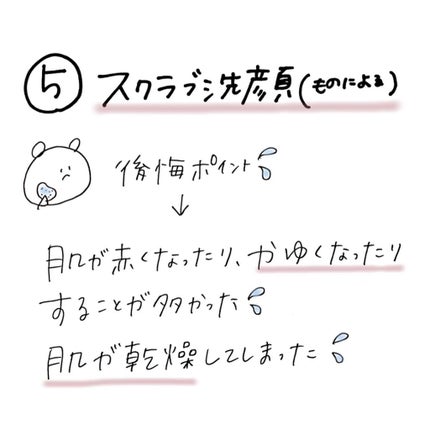 ⑤ スクラブ洗顔(ものによる)
後悔ポイント
↓
肌が赤くなったり、かゆくなったり
することが多かった
肌が乾燥してしまった